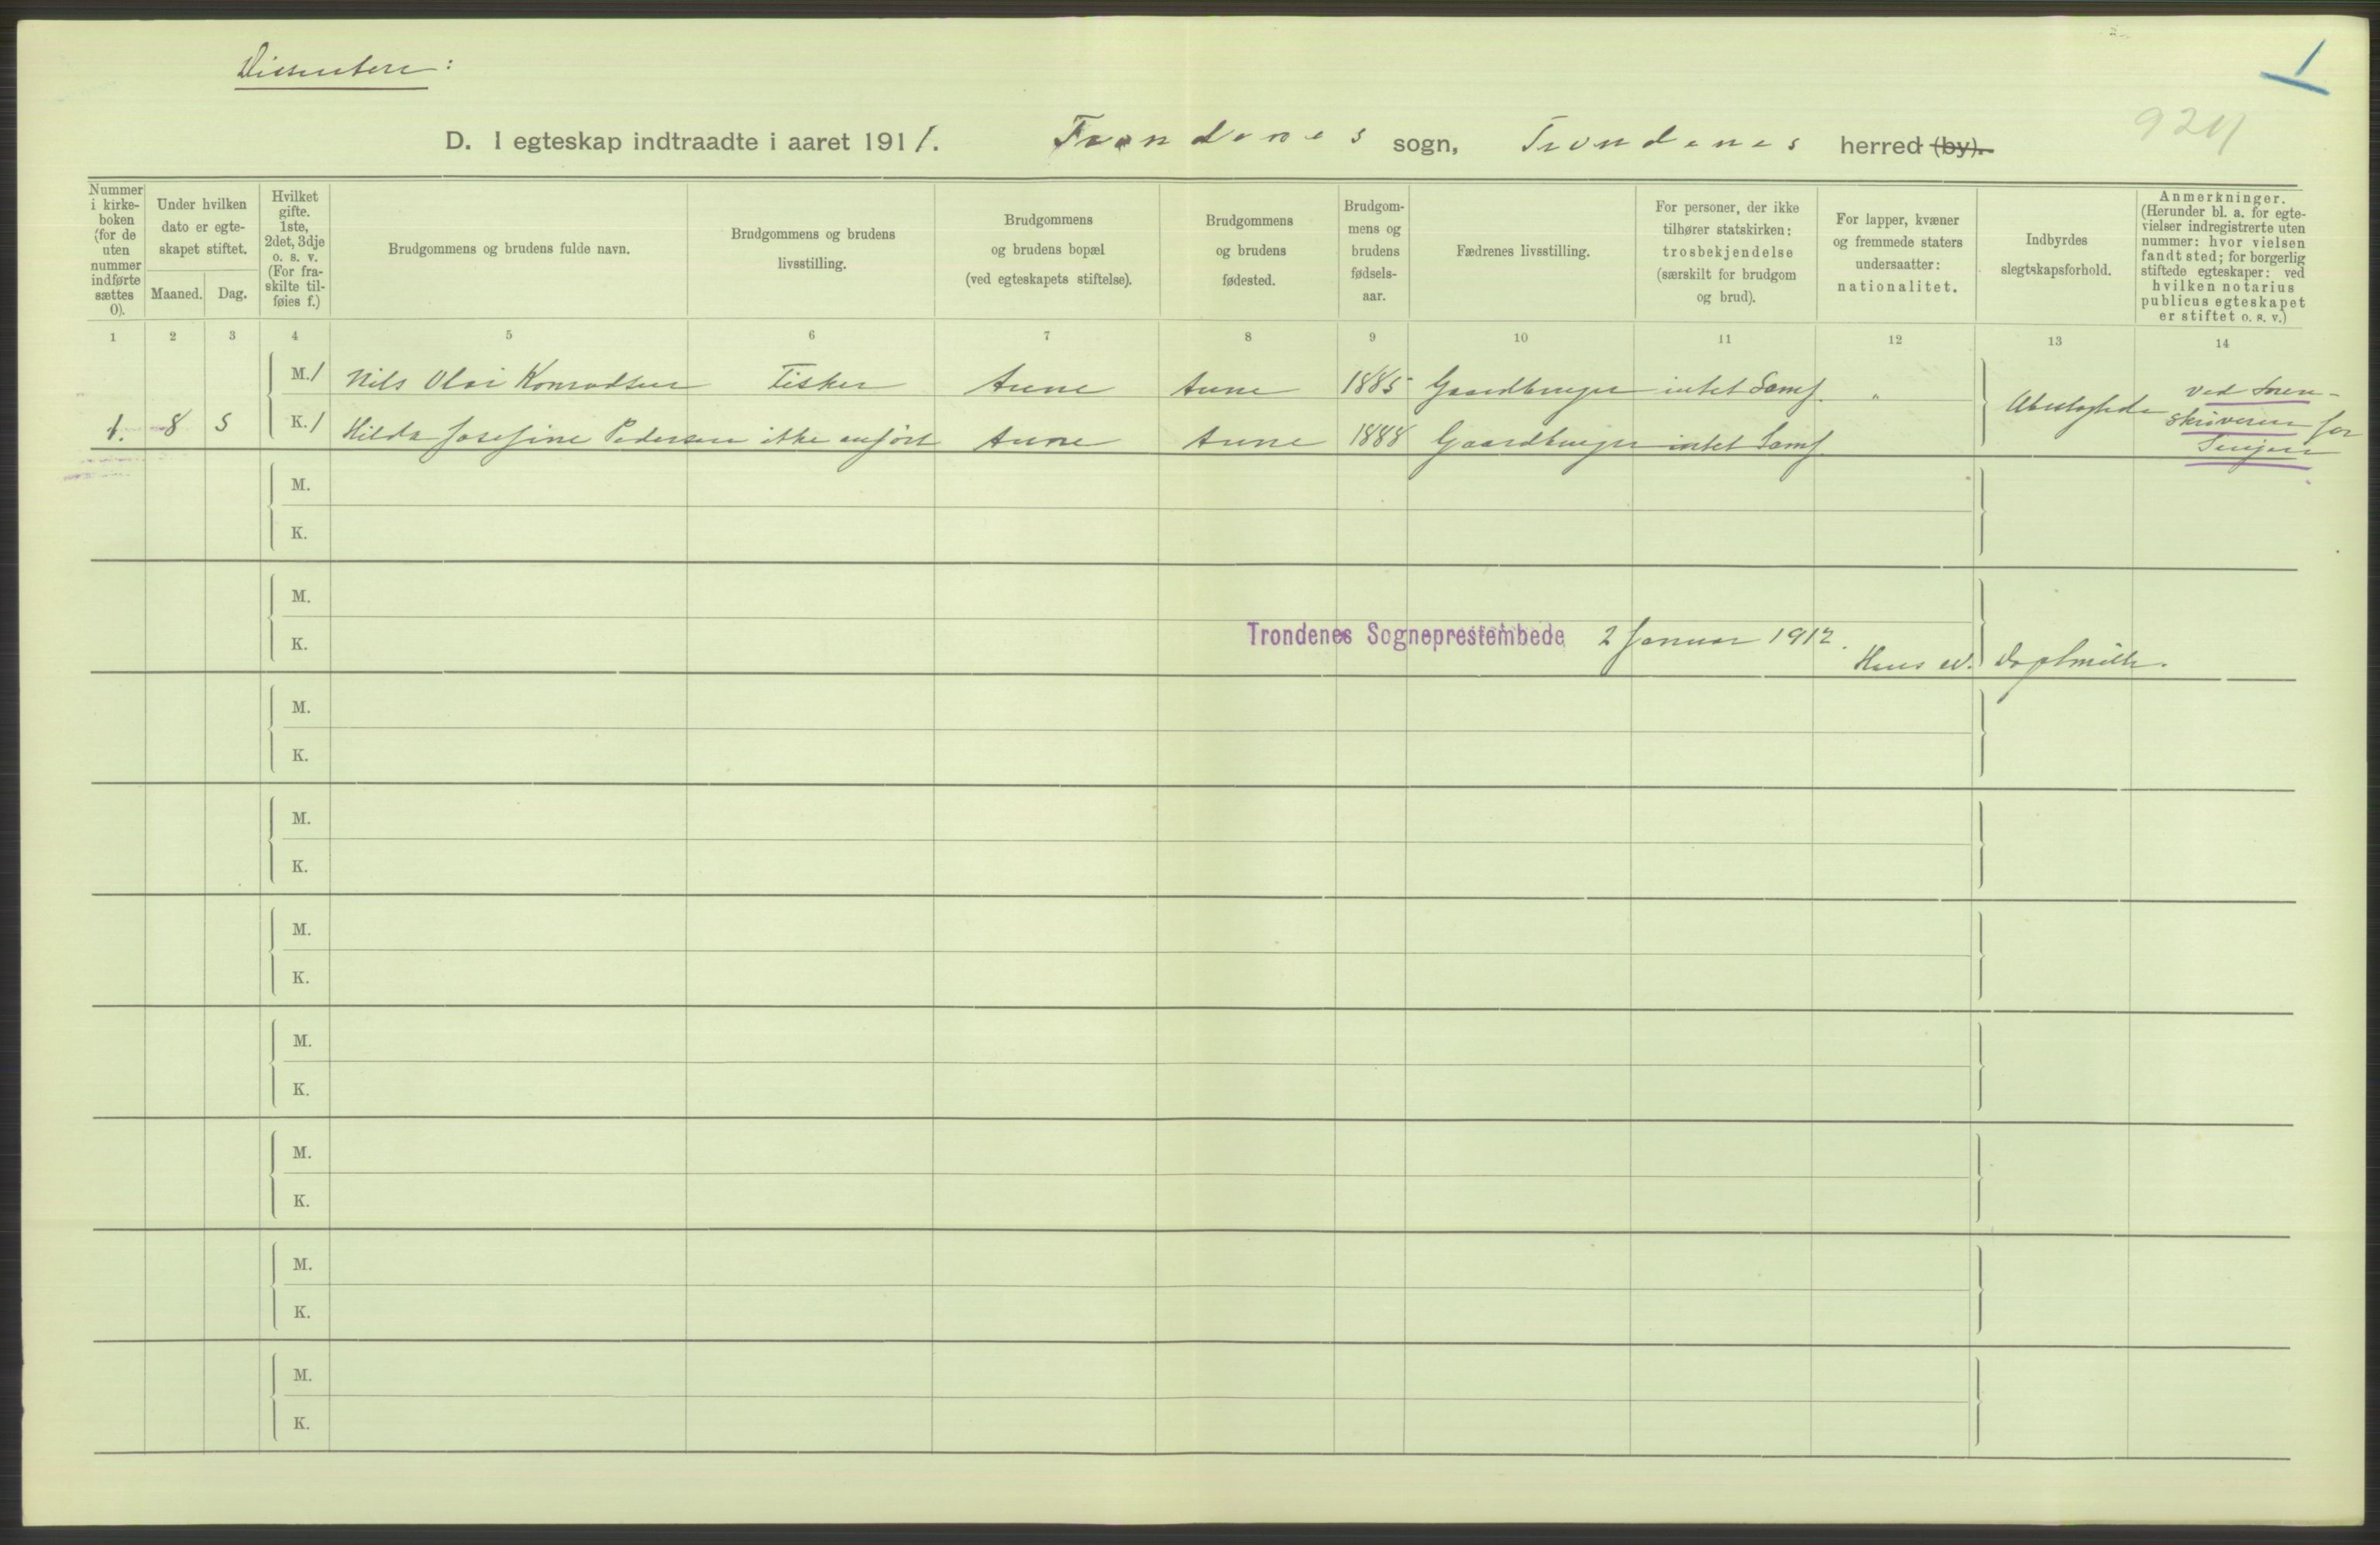 Dissentere:
1
9211
D. I egteskap indtraadte i aaret 1911. Trondenes sogn, Trondenes herred (by).
Nummer i kirkeboken (for de uten nummer indførte sættes 0).
Under hvilken dato er egteskapet stiftet.
Maaned. Dag.
Hvilket gifte. 1ste, 2det, 3dje o. s. v. (For fraskilte tilføies f.)
Brudgommens og brudens fulde navn.
Brudgommens og brudens livsstilling.
Brudgommens og brudens bopæl (ved egteskapets stiftelse).
Brudgommens og brudens fødested.
Brudgommens og brudens fødselsaar.
Fædrenes livsstilling.
For personer, der ikke tilhører statskirken: trosbekjendelse (særskilt for brudgom og brud).
For lapper, kvæner og fremmede staters undersaatter: nationalitet.
Indbyrdes slegtskapsforhold.
Anmerkninger. (Herunder bl. a. for egtevielser indregistrerte uten nummer: hvor vielsen fandt sted; for borgerlig stiftede egteskaper: ved hvilken notarius publicus egteskapet er stiftet o. s. v.)
1 2 3 4 5 6 7 8 9 10 11 12 13 14
M. 1 Nils Olai Konradsen Fisker Aune Aune 1885 Gaardbruger intet Samf. "
1. 8 5 K. 1 Hilda Josefine Pedersen ikke anført Aune Aune 1888 Gaardbruger intet Samf.
Ubeslegtede
ved Soren-
skriveren for
Senjen
M.
K.
M.
Trondenes Sogneprestembede 2 Januar 1912.
K.
Hans
M.
K.
M.
K.
M.
K.
M.
K.
M.
K.
M.
K.
M.
K.